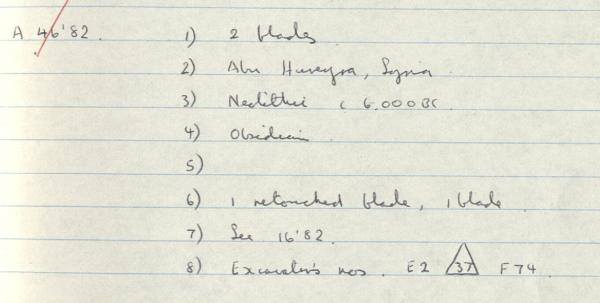 A 46'82. 1) 2 blades
2) Abu Hureyra, Syria
3) Neolithic c 6.000BC.
4) Obsidian
5)
6) 1 retouched blade, 1 blade
7) See 16'82.
8) Excavator's nos. E2 37 F74.